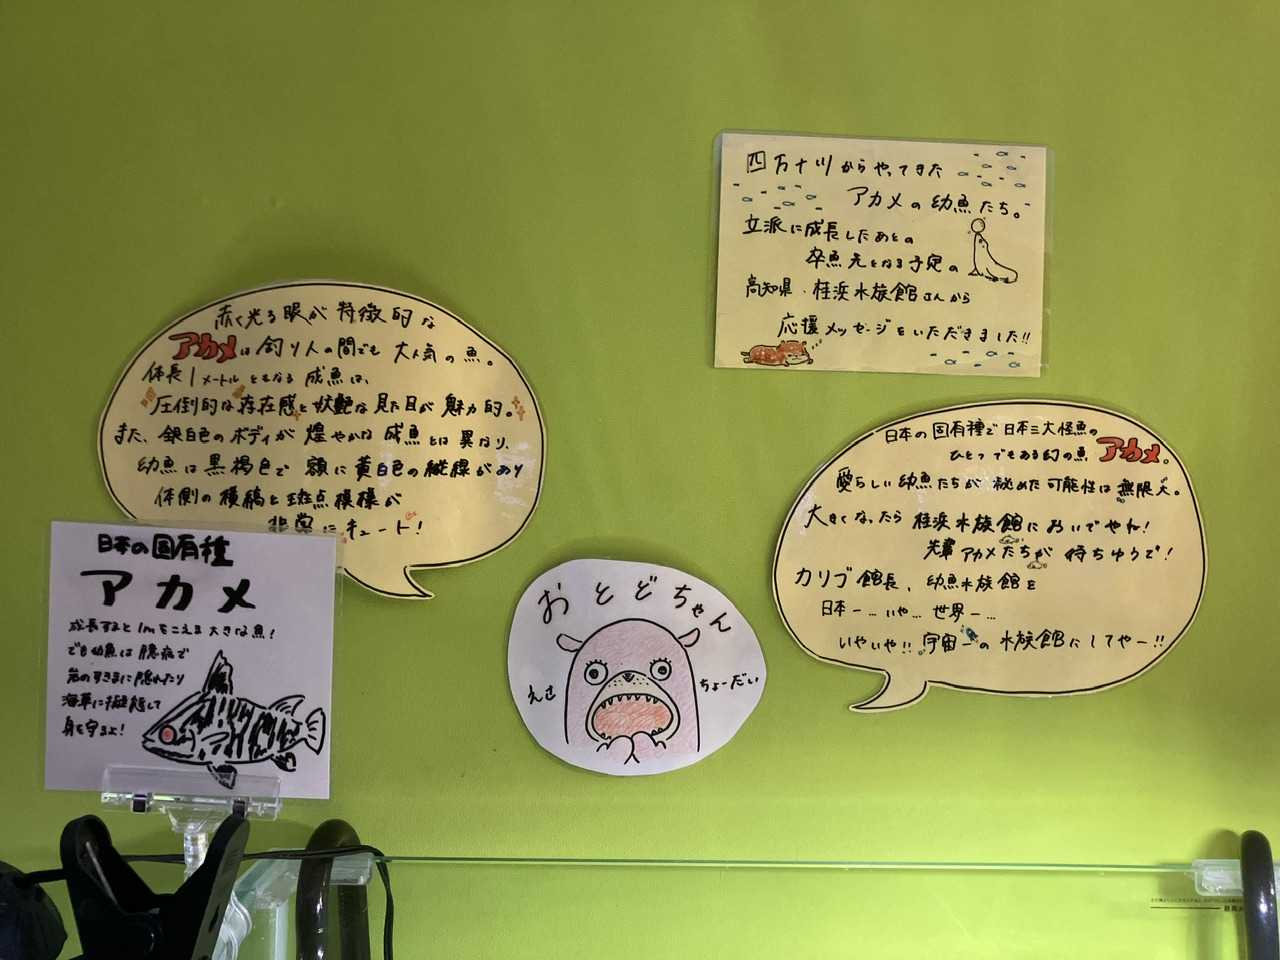 四万十川からやってきた
アカメの幼魚たち。
立派に成長したあとの
卒魚先となる予定の
高知県・桂浜水族館さんから
応援メッセージをいただきました!!
赤く光る眼が特徴的な
アカメは釣り人の間でも大人気の魚。
体長1メートルともなる成魚は、
圧倒的な存在感と妖艶な見た目が魅力的。
また、銀白色のボディが煌やかな成魚とは異なり、
幼魚は黒褐色で額に黄白色の縦線があり
体側の横縞と斑点模様が
非常にキュート!
日本の固有種で日本三大怪魚の
ひとつでもある幻の魚アカメ。
愛らしい幼魚たちが秘めた可能性は無限大。
大きくなったら桂浜水族館においでやね!
先輩アカメたちが待ちゆうで!
カリブ館長、幼魚水族館を
日本一…いや…世界一…
いやいや!!宇宙一の水族館にしてやー!!
日本の固有種
アカメ
成長すると1mをこえる大きな魚!
でも幼魚は臆病で
岩のすきまに隠れたり
海草に擬態して
身を守るよ!
おとどちゃん
えさ ちょーだい